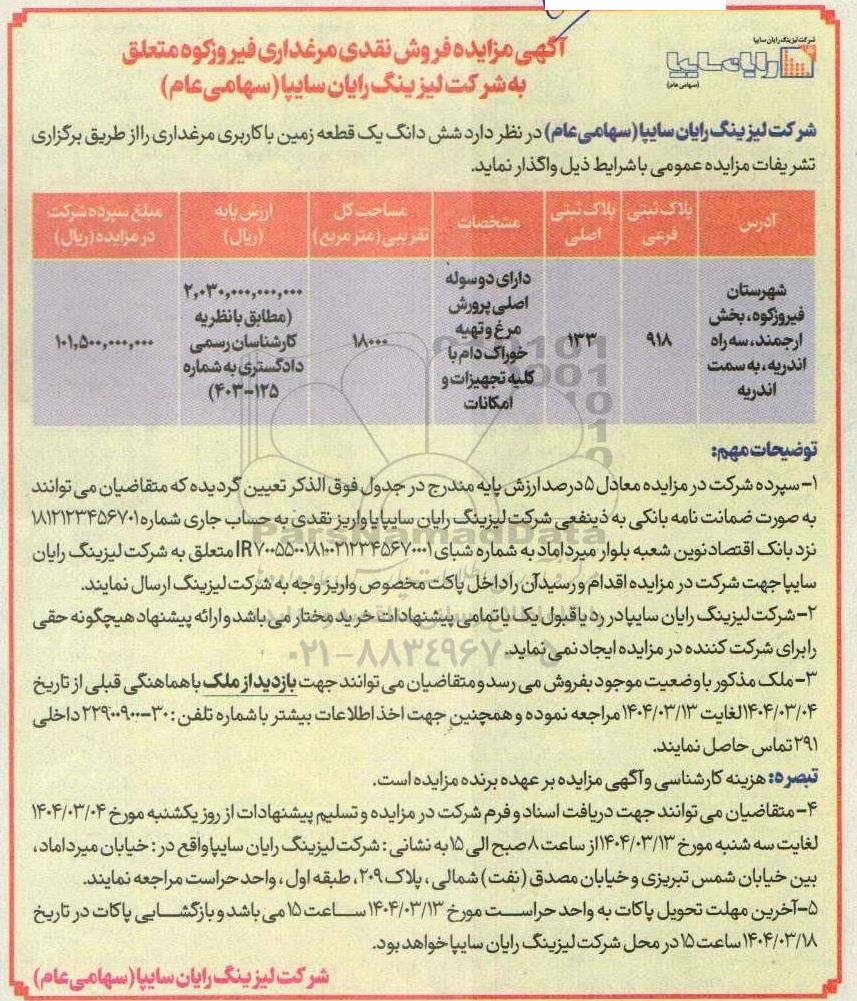 شرکت لیزینگ رایان سایپا
رایان سایپا
(سهامی عام)
آگهی مزایده فروش نقدی مرغداری فیروزکوه متعلق
به شرکت لیزینگ رایان سایپا (سهامی عام)
شرکت لیزینگ رایان سایپا (سهامی عام) در نظر دارد شش دانگ یک قطعه زمین با کاربری مرغداری را از طریق برگزاری
تشریفات مزایده عمومی با شرایط ذیل واگذار نماید.
آدرس
پلاک ثبتی
فرعی
پلاک ثبتی
اصلی
مشخصات
مساحت کل
تقریبی (متر مربع)
ارزش پایه
(ریال)
مبلغ سپرده شرکت
در مزایده (ریال)
شهرستان
فیروزکوه، بخش
ارجمند، سه راه
اندریه، به سمت
اندریه
۹۱۸
۱۳۳
دارای دو سوله
اصلی پرورش
مرغ و تهیه
خوراک دام با
کلیه تجهیزات و
امکانات
۱۸۰۰۰
۲,۰۳۰,۰۰۰,۰۰۰,۰۰۰
(مطابق با نظریه
کارشناسان رسمی
دادگستری به شماره
۱۲۵-۴۰۳)
۱۰۱,۵۰۰,۰۰۰,۰۰۰
توضیحات مهم:
۱- سپرده شرکت در مزایده معادل ۵ درصد ارزش پایه مندرج در جدول فوق الذکر تعیین گردیده که متقاضیان می توانند
به صورت ضمانت نامه بانکی به ذینفعی شرکت لیزینگ رایان سایپا یا واریز نقدی به حساب جاری شماره
نزد بانک اقتصاد نوین شعبه بلوار میرداماد به شماره شبای متعلق به شرکت لیزینگ رایان
سایپا جهت شرکت در مزایده اقدام و رسید آن را داخل پاکت مخصوص واریز وجه به شرکت لیزینگ ارسال نمایند.
۲- شرکت لیزینگ رایان سایپا در رد یا قبول یک یا تمامی پیشنهادات خرید مختار می باشد و ارائه پیشنهاد هیچگونه حقی
را برای شرکت کننده در مزایده ایجاد نمی نماید.
۳- ملک مذکور با وضعیت موجود بفروش می رسد و متقاضیان می توانند جهت بازدید از ملک با هماهنگی قبلی از تاریخ
۱۴۰۴/۰۳/۰۴ لغایت ۱۴۰۴/۰۳/۱۳ مراجعه نموده و همچنین جهت اخذ اطلاعات بیشتر با شماره تلفن: ۳۰-۲۲۹۰۰۹۰۰ داخلی
۲۹۱ تماس حاصل نمایند.
تبصره: هزینه کارشناسی و آگهی مزایده بر عهده برنده مزایده است.
۴- متقاضیان می توانند جهت دریافت اسناد و فرم شرکت در مزایده و تسلیم پیشنهادات از روز یکشنبه مورخ ۱۴۰۴/۰۳/۰۴
لغایت سه شنبه مورخ ۱۴۰۴/۰۳/۱۳ از ساعت ۸ صبح الی ۱۵ به نشانی: شرکت لیزینگ رایان سایپا واقع در: خیابان میرداماد،
بین خیابان شمس تبریزی و خیابان مصدق (نفت) شمالی، پلاک ۲۰۹، طبقه اول، واحد حراست مراجعه نمایند.
۵- آخرین مهلت تحویل پاکات به واحد حراست مورخ ۱۴۰۴/۰۳/۱۳ ساعت ۱۵ می باشد و بازگشایی پاکات در تاریخ
۱۴۰۴/۰۳/۱۸ ساعت ۱۵ در محل شرکت لیزینگ رایان سایپا خواهد بود.
شرکت لیزینگ رایان سایپا (سهامی عام)
ParsNamadData
۰۲۱-۸۸۳۴۹۶۷۰-۵